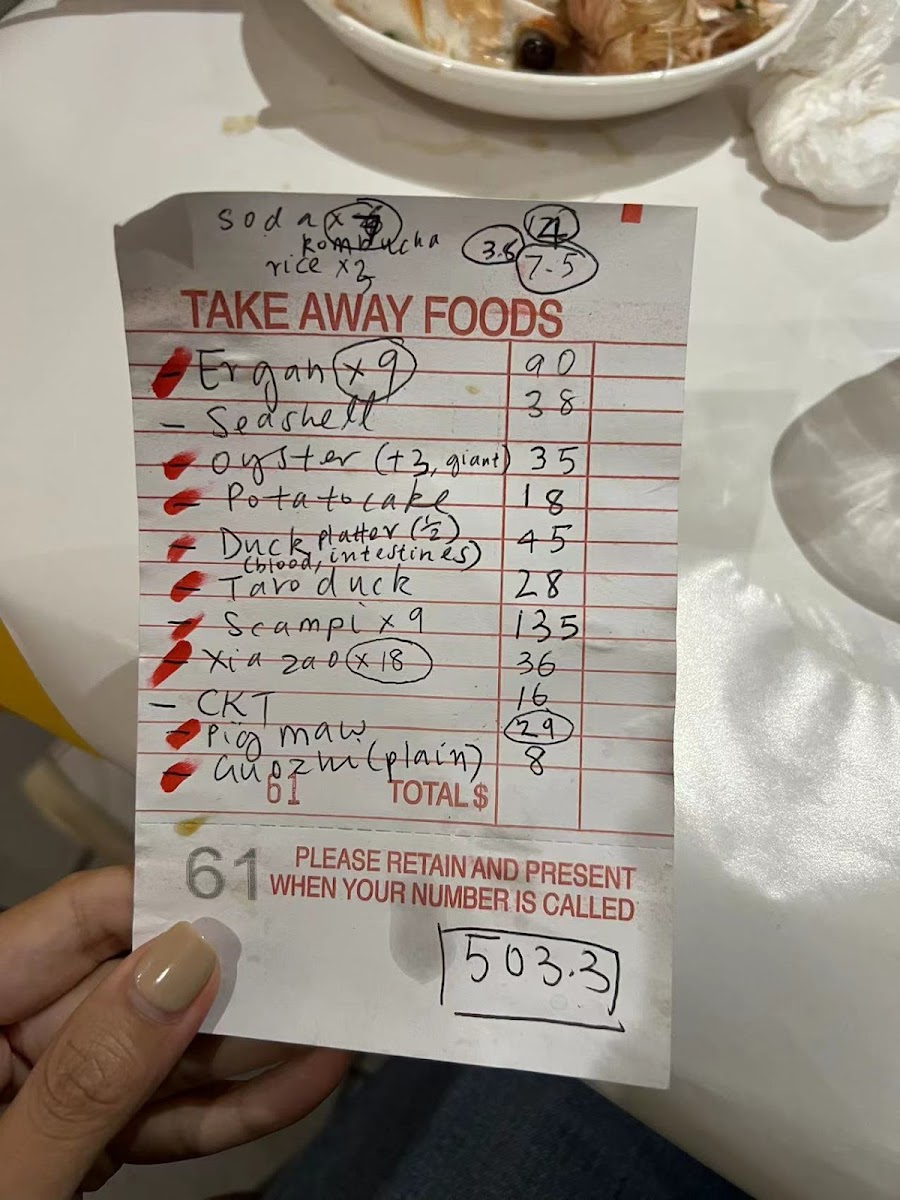 soda x
kombucha 3.8 14
rice x3 7.5
TAKE AWAY FOODS
- Ergan x 9 90
- Seashell 38
- oyster (+3, giant) 35
- Potato cake 18
- Duck platter (1/2) 45
(blood, intestines)
- Taro duck 28
- Scampi x 9 135
- Xia zao x 18 36
- CKT 16
- Pig maw 29
- Guozhi (plain) 8
61 TOTAL $
61 PLEASE RETAIN AND PRESENT
WHEN YOUR NUMBER IS CALLED
503.3